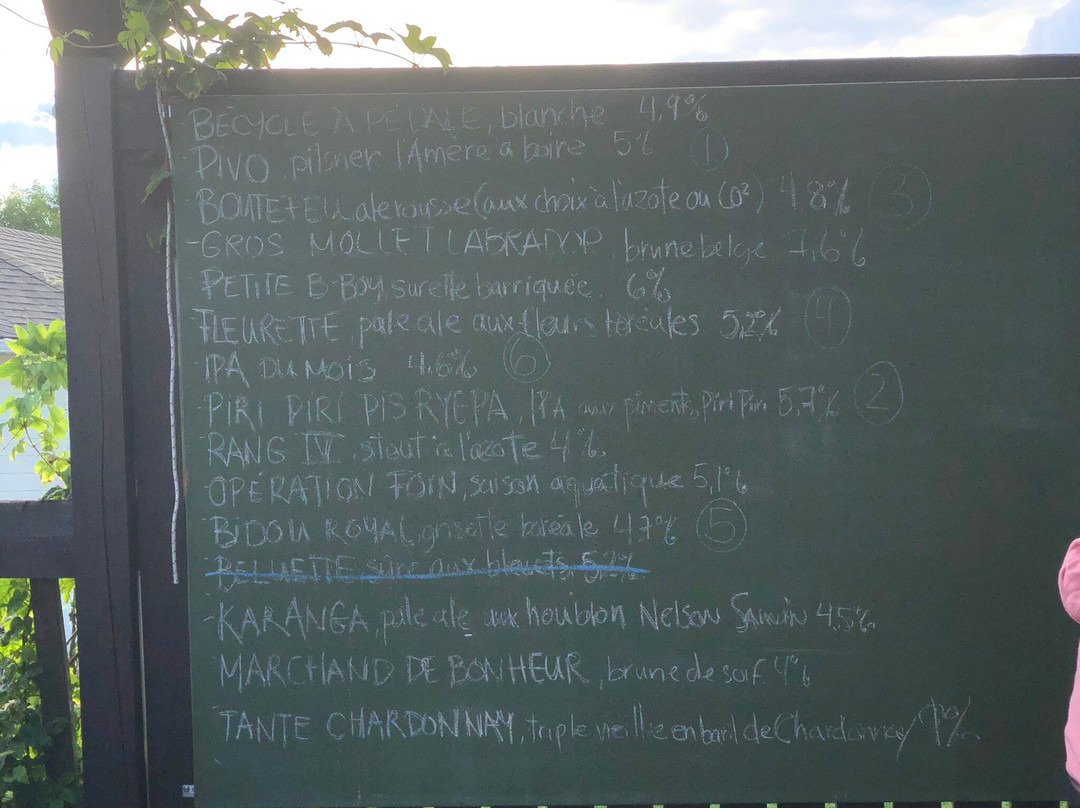 BÉCYCLE À PÉDALE, blanche 4,9%
PIVO pilsner l'Amère à boire 5% ①
BOUTEFEU, ale rousse (aux choix à l'azote ou CO²) 4.8% ③
-GROS MOLLET LABRADOR, brune belge 7,6%
PETITE B-BOY, surette barriquée 6%
FLEURETTE, pale ale aux fleurs boréales 5,2% ④
IPA DU MOIS 4.6% ⑥
PIRI PIRI PIS RYEPA, IPA aux piments Piri Piri 5,7% ②
RANG IV, stout à l'azote 4%
OPÉRATION FOIN, saison aquatique 5,1%
BIDOU ROYAL, grisette boréale 4.7% ⑤
BELUETTE sûre aux bleuets 5,2%
-KARANGA, pale ale aux houblon Nelson Sauvin 4.5%
MARCHAND DE BONHEUR, brune de soif 4%
TANTE CHARDONNAY, triple vieillie en baril de Chardonnay %